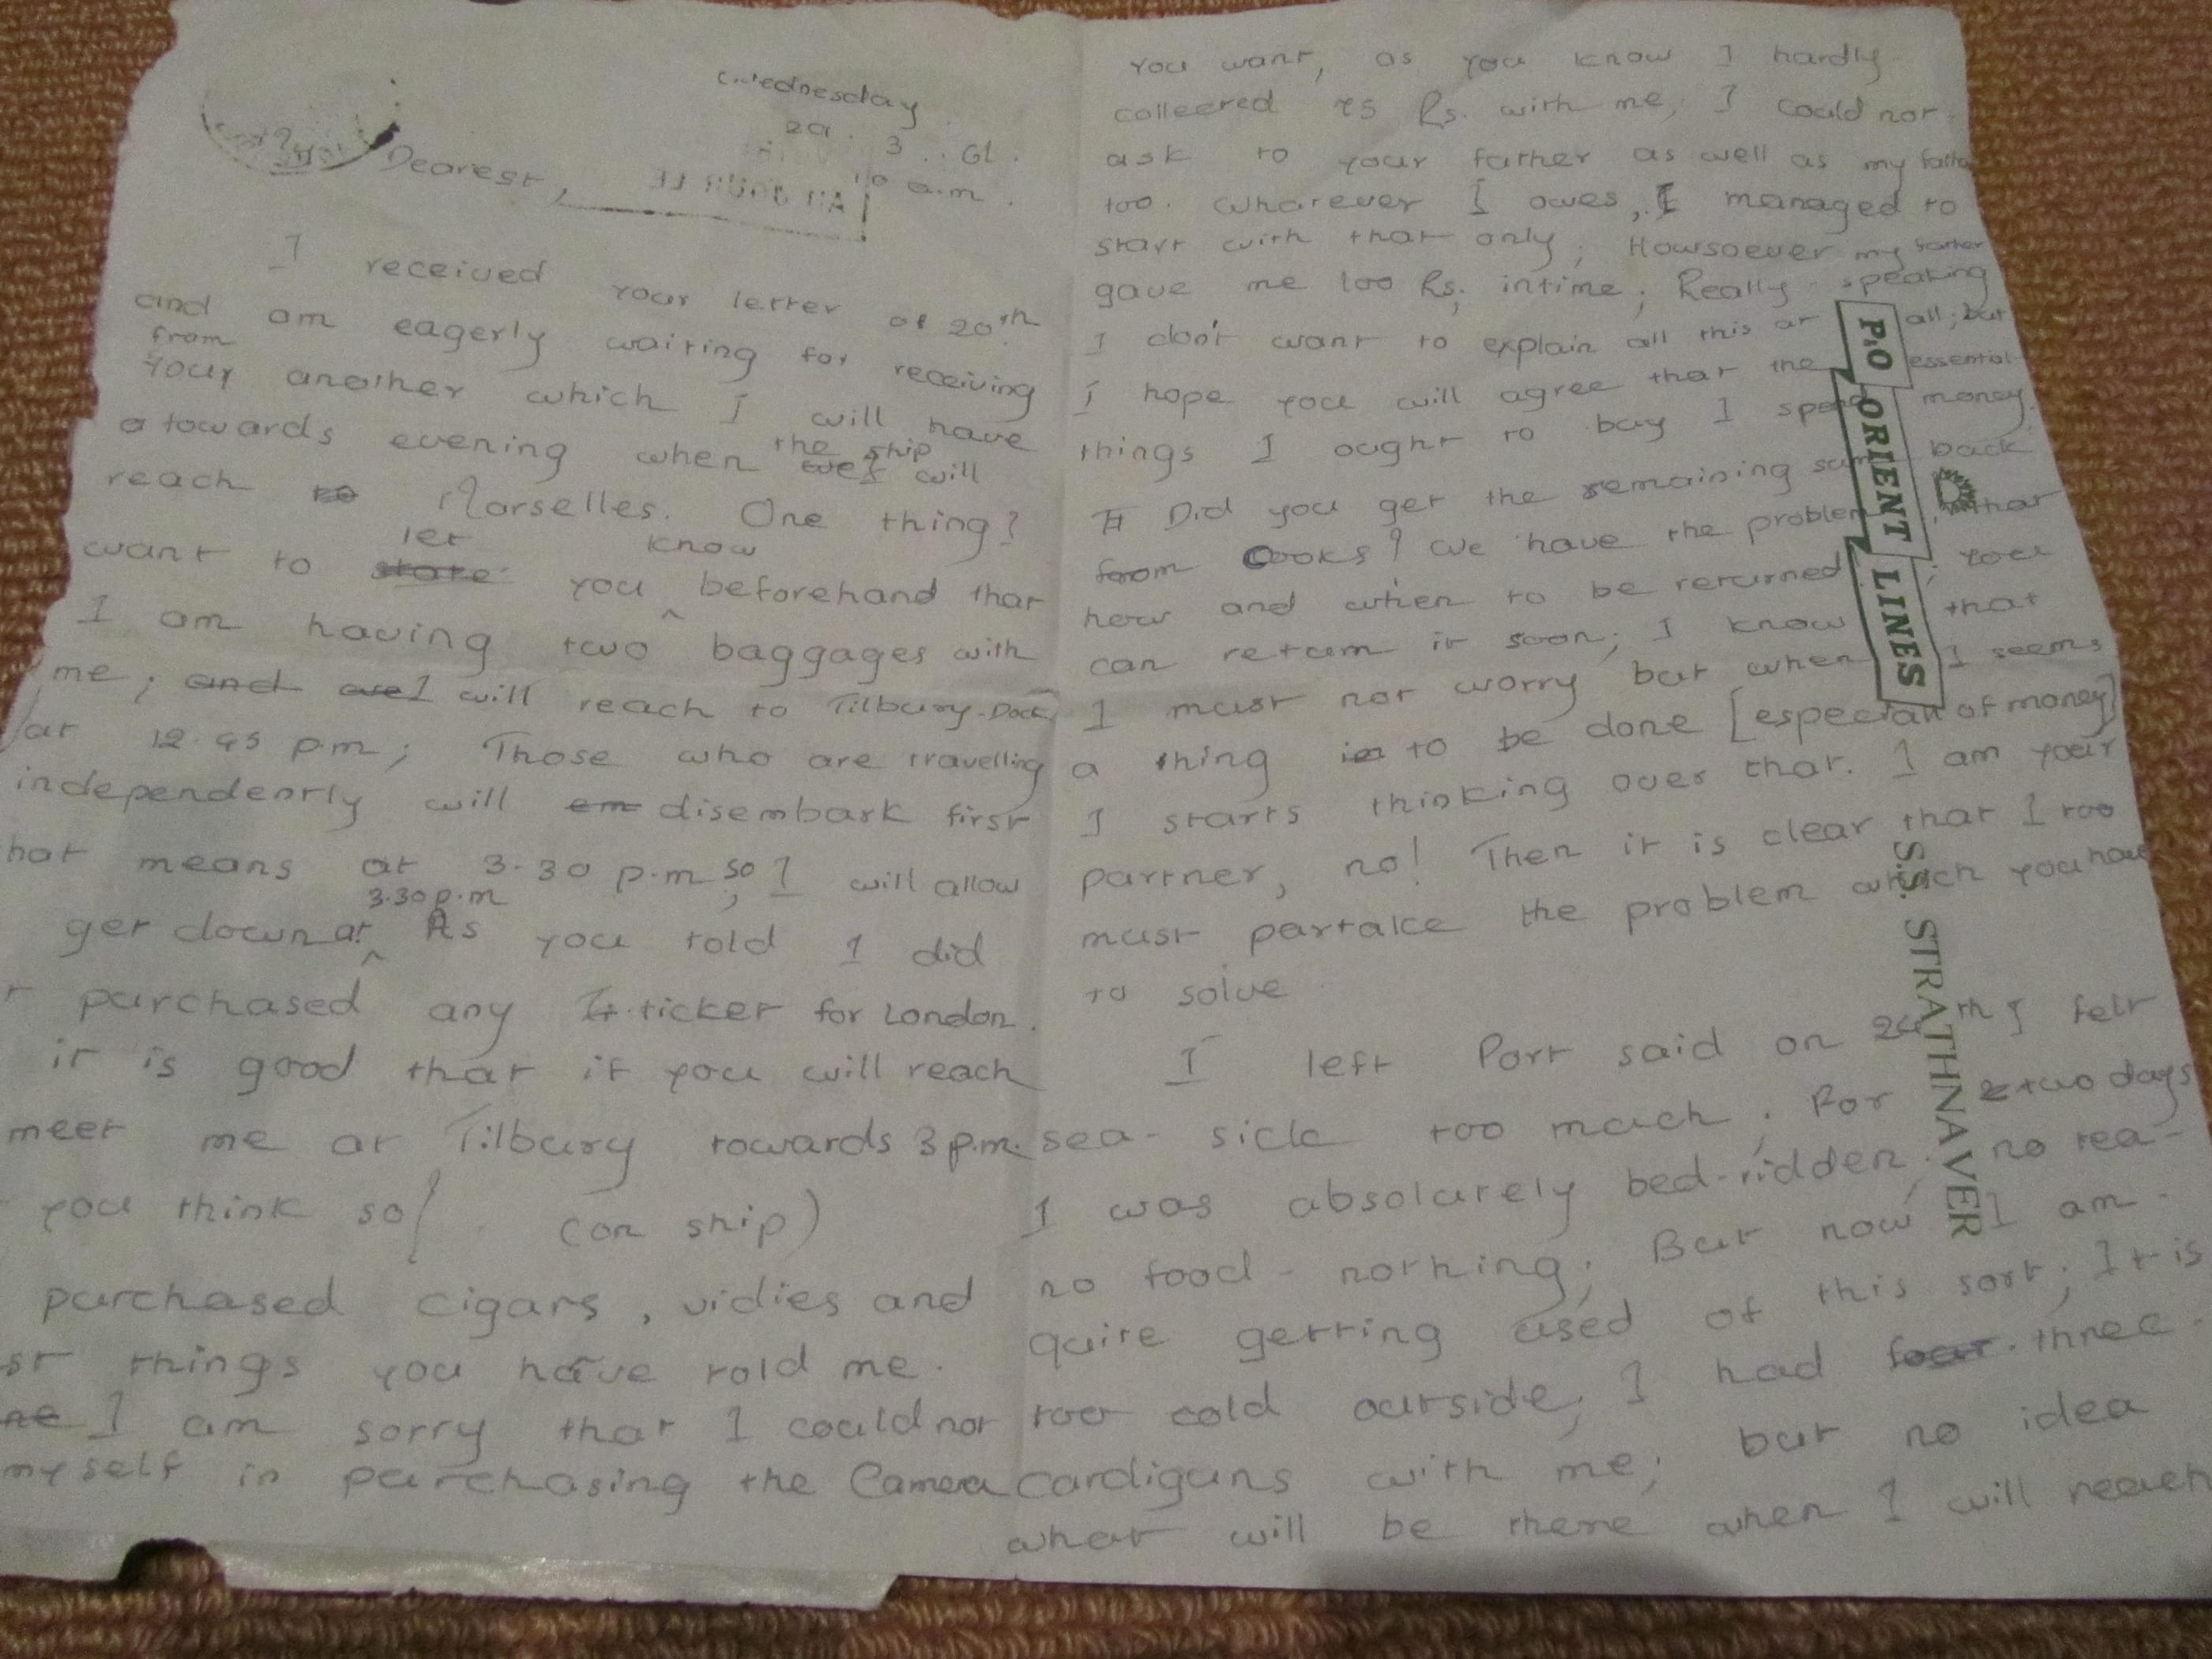 Wednesday
29. 3. 61.
10 a.m.
Dearest,
I received your letter of 20th
and am eagerly waiting for receiving
from
your another which I will have
towards evening when the ship will
reach to Marselles. One thing?
want to state let you know beforehand that
I am having two baggages with
me; and we I will reach to Tilbury-Dock
at 12.45 pm; Those who are travelling
independently will em disembark first
hat means at 3.30 p.m; so I will allow
get down at 3.30 p.m As you told I did
t purchased any ticker for London.
it is good that if you will reach
meet me at Tilbury towards 3 p.m.
you think so!
(on ship)
purchased cigars, vidies and
st things you have told me.
ne I am sorry that I could not
myself in purchasing the Camera
you want, as you know I hardly
colleered Rs. with me, I could not
ask to your father as well as my
too. Whatever I owes, I managed to
start with that only; Howsoever my father
gave me 100 Rs; intime; Really speaking
I don't want to explain all this at all; but
I hope you will agree that the essential
things I ought to buy I money.
Did you get the remaining back
from Cooks? We have the problem, that
how and when to be returned; you
can return it soon; I know that
I must not worry but when I seems
a thing in to be done [especially of money]
I starts thinking over that. I am your
partner, no! Then it is clear that I too
must partake the problem which you have
to solve.
I left Port said on I felt
sea-sick too much; For two days
I was absolutely bed-ridden; no tea-
no food - nothing; But now I am
quite getting used of this sort; It is
too cold outside; I had four three
cardigans with me; but no idea
what will be there when I will reach
P.O ORIENT LINES
S.S. STRATHNAVER